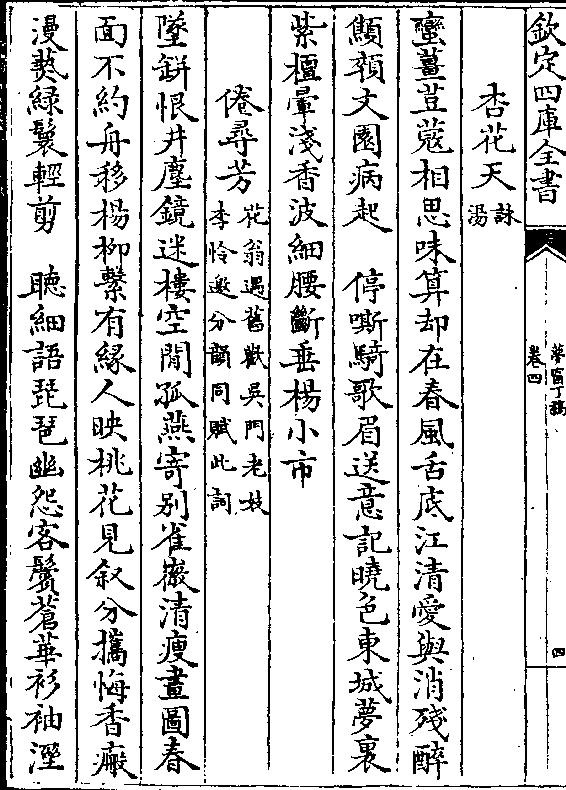 欽定四庫全書
夢窗丁稿
卷四
四
杏花天
詠
湯
蠻薑荳蔻相思味算却在春風舌底江清愛與消殘醉
顦顇文園病起　停嘶騎歌眉送意記曉色東城夢裏
紫檀暈淺香波細腸斷垂楊小市
倦尋芳
花翁遇舊歡吳門老妓
李怜邀分韻同賦此詞
墜缾恨井塵鏡迷樓空閒孤燕寄别崔徽清瘦畫圖春
面不約舟移楊柳繫有緣人映桃花見叙分攜悔香瘢
漫爇緑鬟輕剪　聽細語琵琶幽怨客鬢蒼華衫袖溼